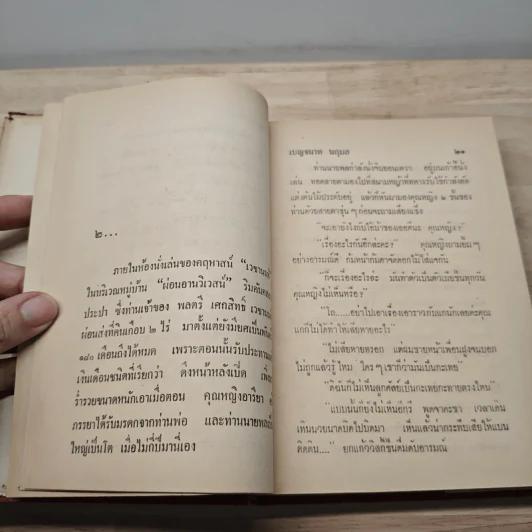 ๒...
ภายในห้องนั่งเล่นของคฤหาสน์
ในบริเวณหมู่บ้าน “ผ่อนอานวิเวสน์” ริมคันคลอง
ประปา ซึ่งท่านเจ้าของ พลตรี เศกสิทธิ์
ผ่อนส่งที่ดินเกือบ ๒ ไร่ มาตั้งแต่ยังมียศเป็น
๑๘๐ เดือนถึงได้หมด เพราะตอนนั้นรับประทาน
เงินเดือนชนิดที่เรียกว่า ดึงหน้าหลังเปิด
ร่ำรวยขนาดหนักเอาเมื่อตอน คุณหญิงอารียา
ภรรยาได้รับมรดกจากท่านพ่อ และท่านนายพล
ใหญ่เป็นโต เมื่อไม่กี่ปีมานี่เอง
เบญจมาศ นฤมล ๒๑
ท่านนายพลกำลังนั่งจิบออนเดรา อยู่บนเก้าอี้นั่ง
เล่น ทอดสายตามองไปที่สนามหญ้าที่ทหารรับใช้กำลังตัด
แต่งต้นไม้ประดับอยู่ แล้วก็หันมามองคุณหญิง ๒ ขันของ
ท่านด้วยสายตาขุ่น ๆ ก่อนจะถามเสียงแข็ง
“จะเอายังไงกับไอ้บ้าของเธอดีนะ คุณหญิง?”
“เรื่องอะไรกันอีกล่ะคะ?” คุณหญิงถามยิ้ม ๆ
อย่างอารมณ์ดี ก้มหน้าก้มตาจัดดอกไม้ใส่แจกัน
“ก็จะเรื่องอะไรอีกล่ะ มันทำตัวเป็นดัดจริตขึ้นทุกวัน
คุณหญิงไม่เห็นหรือ?”
“โถ.....อย่าไปเอาเรื่องเอาราวกับแกนักเลยค่ะคุณ
แกก็ไม่ได้ทำให้ใครเสียหายอะไร”
“ไม่เสียหายหรอก แต่ผมขายหน้าเพื่อนฝูงจนบอก
ไม่ถูกแล้วรู้ไหม ใคร ๆ เขาก็ว่ามันเป็นกะเทย”
“ดิฉันก็ไม่เห็นลูกคัลย์เป็นกะเทยกะทายตรงไหน”
“แบบนั้นก็ยังไม่เห็นอีกรึ พูดจาคะขา เวลาเดิน
เหินนวยนาดบิดไปบิดมา เห็นแล้วน่ากระทืบเสียให้แบน
ติดดิน....” ยกแก้ววิสกี้ขึ้นดื่มดับอารมณ์